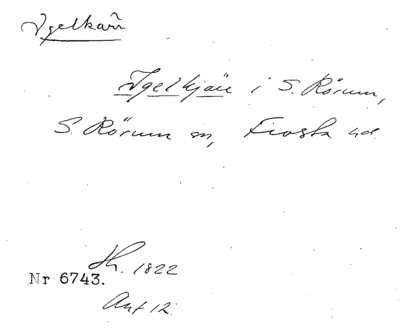 Igelkärr
Igelkjärr i S. Rörum,
S. Rörum sn, Frosta hd.
Lh. 1822
Nr 6743.
Ant 12